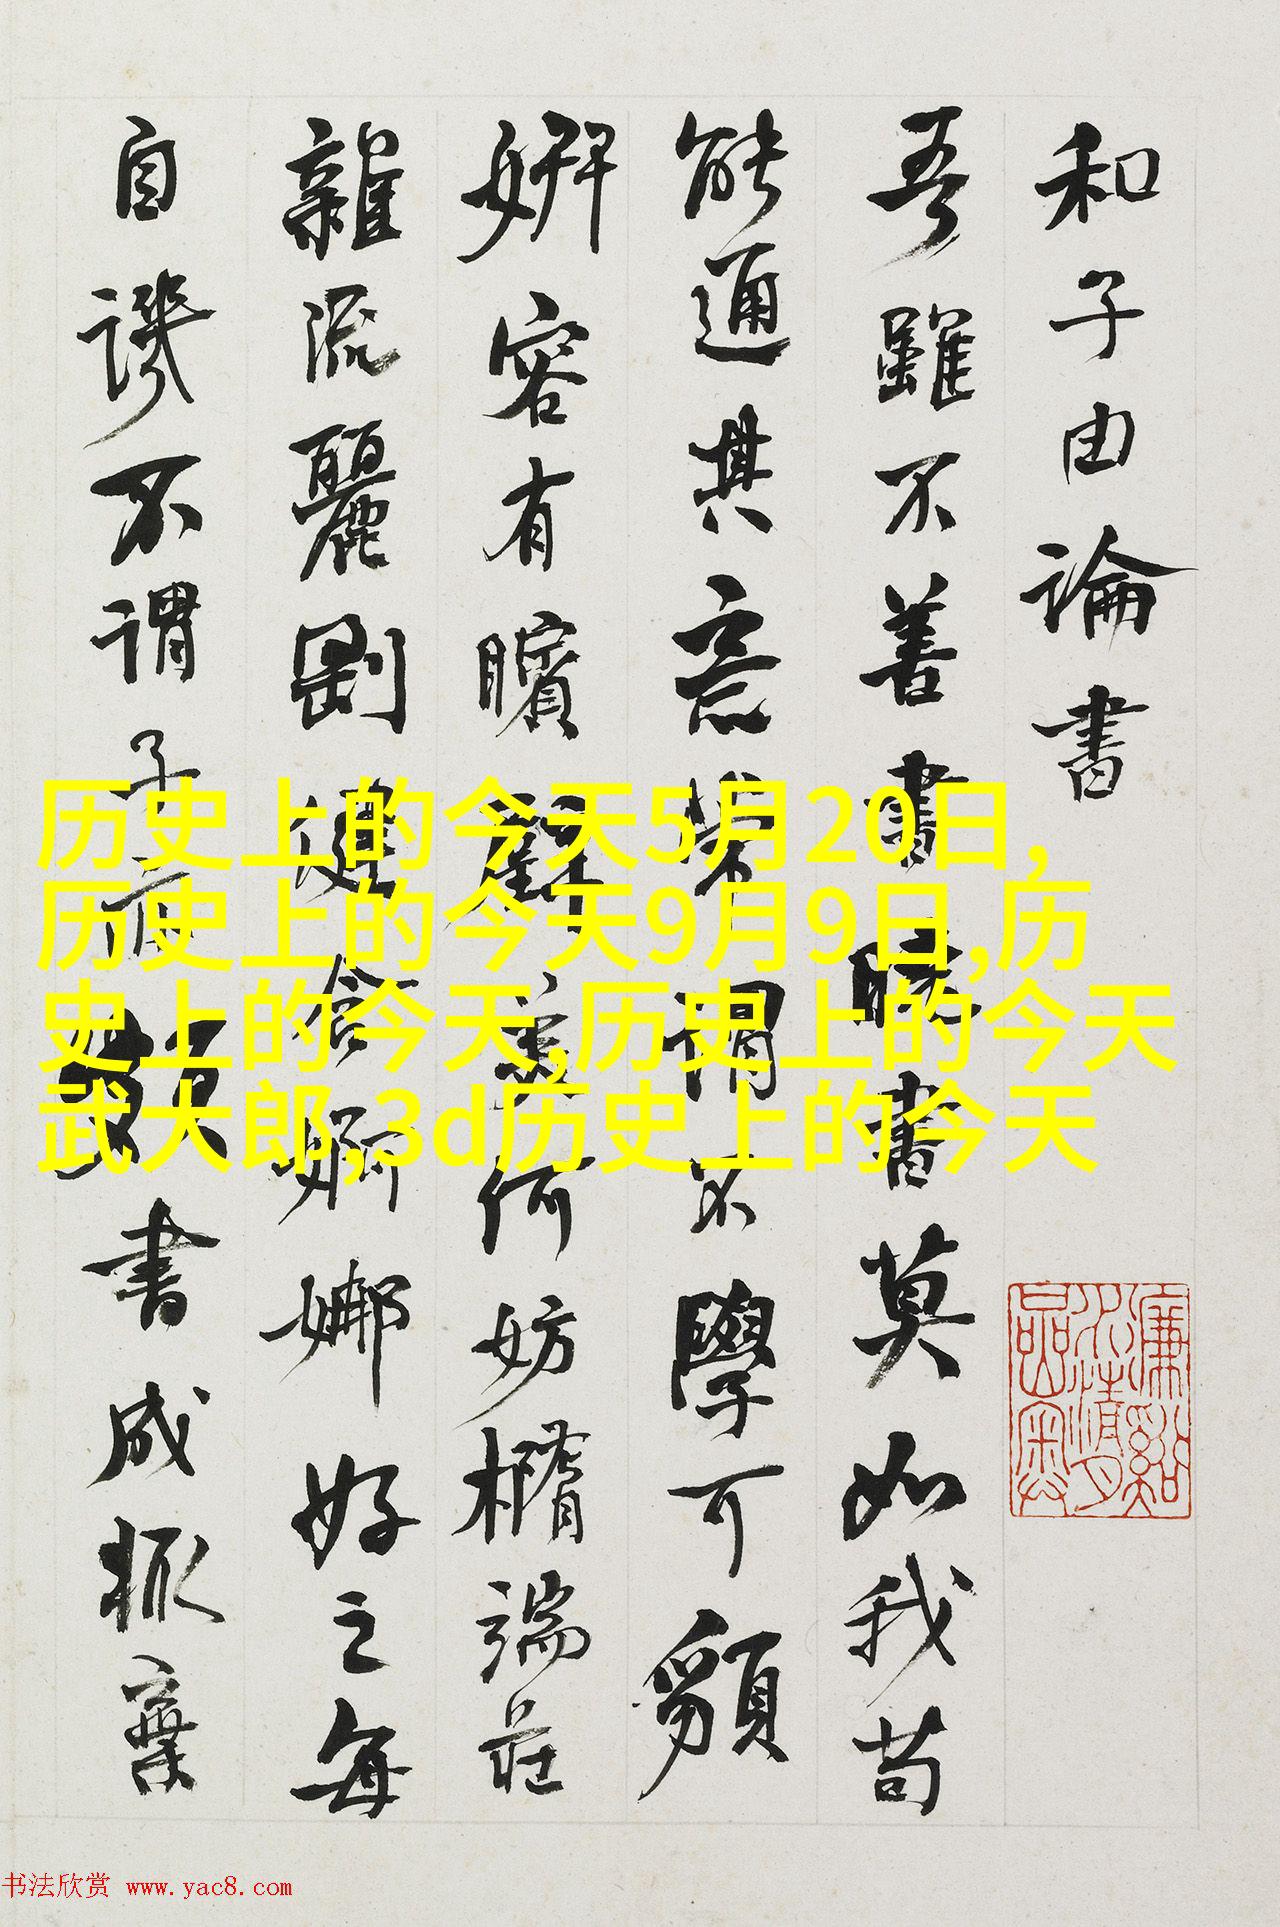 和子由論書
吾雖不善書曉書莫如我苟
能通其意常謂不學可䫉
妍容有矉璧美何妨橢端莊
雜流麗剛健含婀娜好之每
自譏不謂子亦頗書成輒棄
历史上的今天5月20日,
历史上的今天9月9日,历
史上的今天,历史上的今天
武大郎,3d历史上的今天
书法欣赏 www.yac8.com